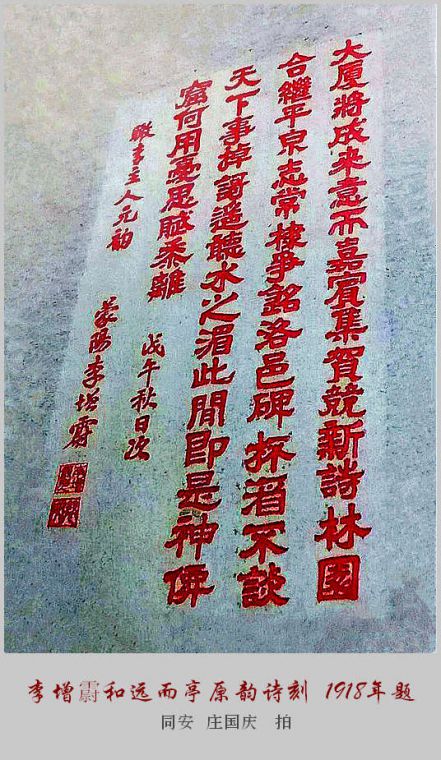 大厦將成來意而嘉賓集賀競新詩林園
合繼平泉志常棣爭銘洛邑碑杯酒不談
天下事棹謌遙聽水之湄此間即是神僊
窟何用憂思賦黍離 戊午秋日次
瞰青主人元韵 蒙陽李增霨
李增霨和远而亭原韵诗刻 1918年题
同安 庄国庆 拍